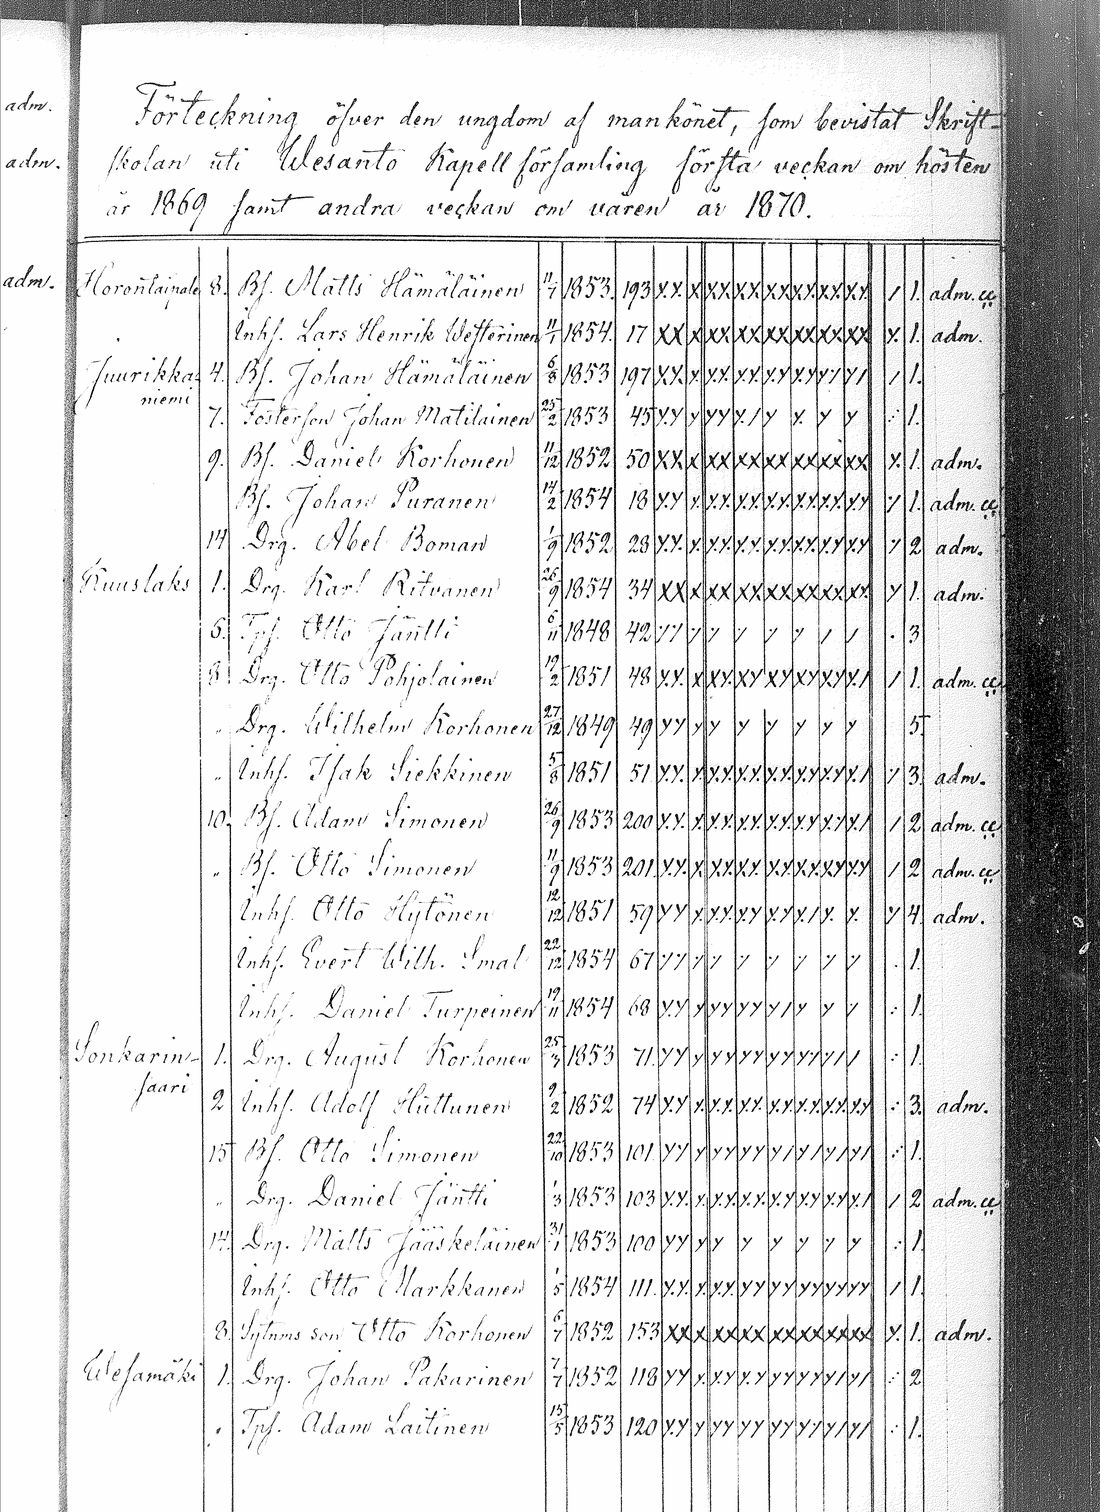 adm.
adm.
adm.
Förteckning öfver den ungdom af mankönet, som bevistat Skrift-
skolan uti Wesanto Kapellförsamling första veckan om hösten
år 1869 samt andra veckan om våren år 1870.
Horontaipale 8. Bs. Matts Hämäläinen 11/7 1853. 193 x.x. x xx xx xx xx xx / 1. adm. cc
Inhs. Lars Henrik Westerinen 11/1 1854. 17 xx x xx xx xx xx xx x. 1. adm.
Juurikka- 4. Bs. Johan Hämäläinen 6/8 1853 197 / 1.
niemi
7. Fosterson Johan Matilainen 25/2 1853 45 1.
9. Bs. Daniel Korhonen 11/12 1852 50 xx x xx xx xx xx xx x. 1. adm.
Bs. Johan Puranen 14/2 1854 18 y 1. adm. cc
14 Drg. Abel Boman 1/9 1852 28 y 2 adm.
Kuuslaks 1. Drg. Karl Ritvanen 26/9 1854 34 xx x xx xx xx xx xx y 1. adm.
5. Tps. Otto Jäntti 6/11 1848 42 3
8. Drg. Otto Pohjolainen 19/2 1851 48 / 1. adm. cc
" Drg. Wilhelm Korhonen 27/12 1849 49 5
" Inhs. Isak Siekkinen 5/8 1851 51 y 3. adm.
10. Bs. Adam Simonen 26/9 1853 200 / 2 adm. cc
" Bs. Otto Simonen 11/9 1853 201 / 2 adm. cc
Inhs. Otto Hytönen 12/12 1851 59 y 4. adm.
Inhs. Evert Wilh. Smal 22/12 1854 67 1.
Inhs. Daniel Turpeinen 19/11 1854 68 1.
Sonkarin- 1. Drg. August Korhonen 25/3 1853 71. 1.
saari
2 Inhs. Adolf Huttunen 9/2 1852 74 3. adm.
15 Bs. Otto Simonen 22/10 1853 101. 1.
" Drg. Daniel Jäntti 1/3 1853 103 / 2 adm. cc
14. Drg. Matts Jääskeläinen 31/1 1853 100 1.
Inhs. Otto Markkanen 1/5 1854 111. / 1.
8. Sytnms son Otto Korhonen 6/7 1852 153 xx x xx xx xx xx xx x. 1. adm.
Wesamäki 1. Drg. Johan Pakarinen 7/7 1852 118 2
" Tps. Adam Laitinen 15/5 1853 120 1.